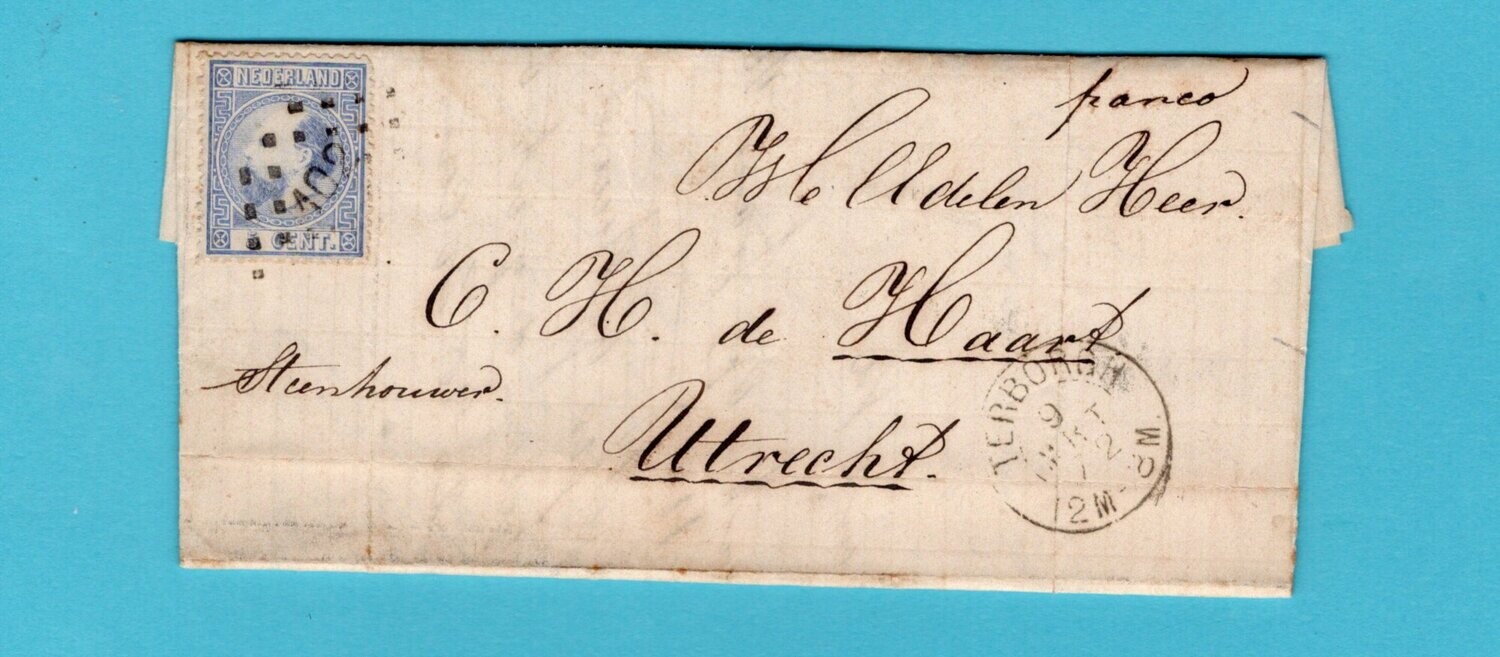 NEDERLAND
5 CENT.
franco
Heer
C. H. de Haart
Steenhouwer.
Utrecht.
TERBORGH
9
12M-8VM